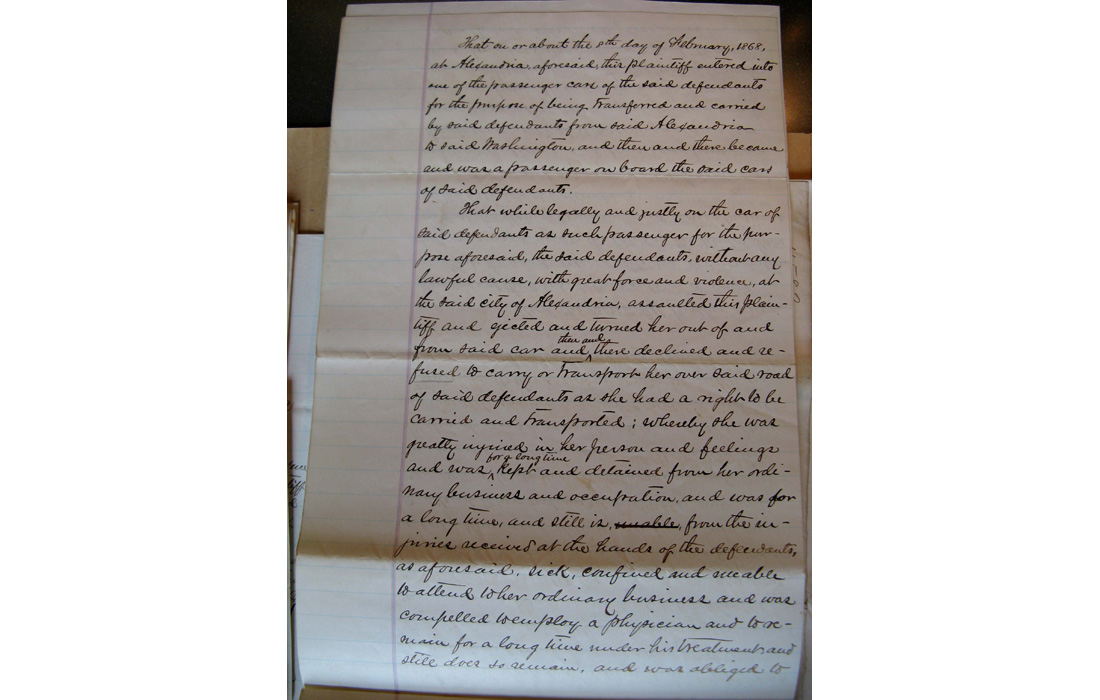 That on or about the 8th day of February, 1868,
at Alexandria, aforesaid, this plaintiff entered into
one of the passenger cars of the said defendants
for the purpose of being transferred and carried
by said defendants from said Alexandria
to said Washington, and then and there became
and was a passenger on board the said cars
of said defendants.
That while legally and justly on the car of
said defendants as such passenger for the pur-
pose aforesaid, the said defendants, without any
lawful cause, with great force and violence, at
the said city of Alexandria, assaulted this plain-
tiff and ejected and turned her out of and
from said car and then and there declined and re-
fused to carry or transport her over said road
of said defendants as she had a right to be
carried and transported; whereby she was
greatly injured in her person and feelings
and was for a long time kept and detained from her ordi-
nary business and occupation, and was for
a long time, and still is, unable, from the in-
juries received at the hands of the defendants,
as aforesaid, sick, confined and unable
to attend to her ordinary business and was
compelled to employ a physician and to re-
main for a long time under his treatment and
still does so remain, and was obliged to